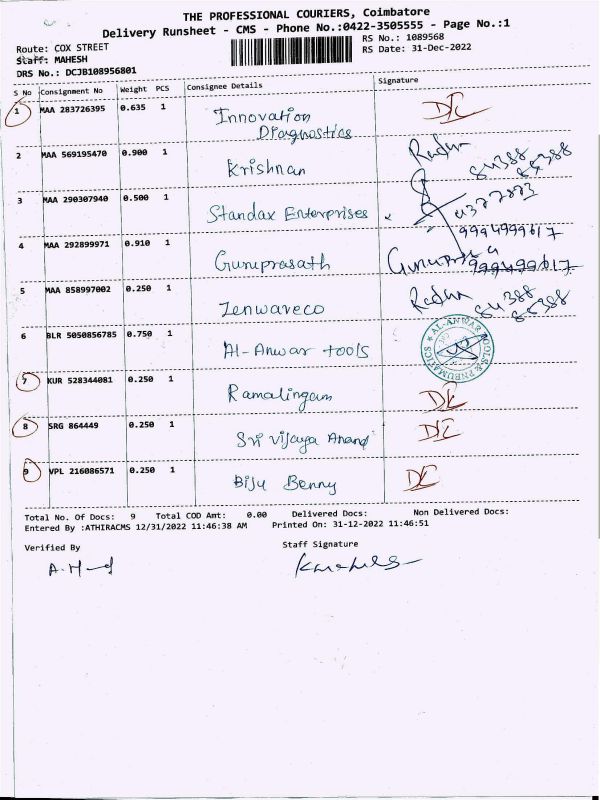 THE PROFESSIONAL COURIERS, Coimbatore
Delivery Runsheet - CMS - Phone No.:0422-3505555 - Page No.:1
Route: COX STREET
RS No.: 1089568
Staff: MAHESH
RS Date: 31-Dec-2022
DRS No.: DCJB108956801
S No Consignment No Weight PCS Consignee Details Signature
1 MAA 283726395 0.635 1 Innovation Diagnostics D/C
2 MAA 569195470 0.900 1 Krishnan
3 MAA 290307940 0.500 1 Standax Enterprises
9994999617
4 MAA 292899971 0.910 1 Guruprasath 9994999617
5 MAA 858997002 0.250 1 Zenwaveco
6 BLR 5050856785 0.750 1 Al-Anwar tools AL-ANWAR TOOLS & PNEUMATICS
7 KUR 528344081 0.250 1 Ramalingam D/C
8 SRG 864449 0.250 1 Sri vijaya Anand D/C
9 VPL 216086571 0.250 1 Biju Benny D/C
Total No. Of Docs: 9 Total COD Amt: 0.00 Delivered Docs: Non Delivered Docs:
Entered By :ATHIRACMS 12/31/2022 11:46:38 AM Printed On: 31-12-2022 11:46:51
Verified By Staff Signature